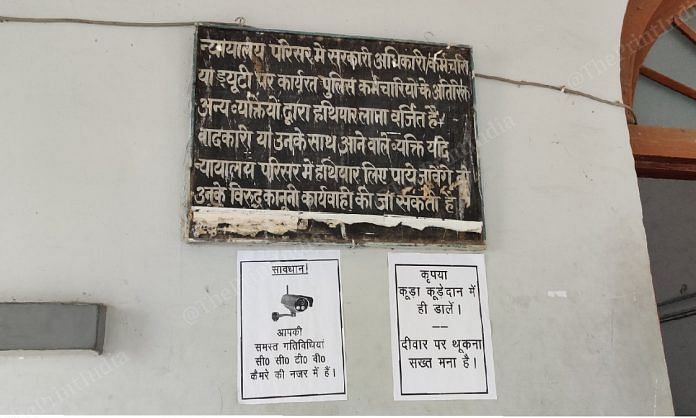 न्यायालय परिसर में सरकारी अधिकारी/कर्मचारी
या ड्यूटी पर कार्यरत पुलिस कर्मचारियों के अतिरिक्त
अन्य व्यक्तियों द्वारा हथियार लाना वर्जित है।
वादकारी या उनके साथ आने वाले व्यक्ति यदि
न्यायालय परिसर में हथियार लिए पाये जावेंगे तो
उनके विरुद्ध कानूनी कार्यवाही की जा सकती है
सावधान!
आपकी
समस्त गतिविधियां
सी० सी० टी० वी०
कैमरे की नजर में हैं।
कृपया
कूड़ा कूड़ेदान में
ही डालें।
दीवार पर थूकना
सख्त मना है।
@ThePrintIndia